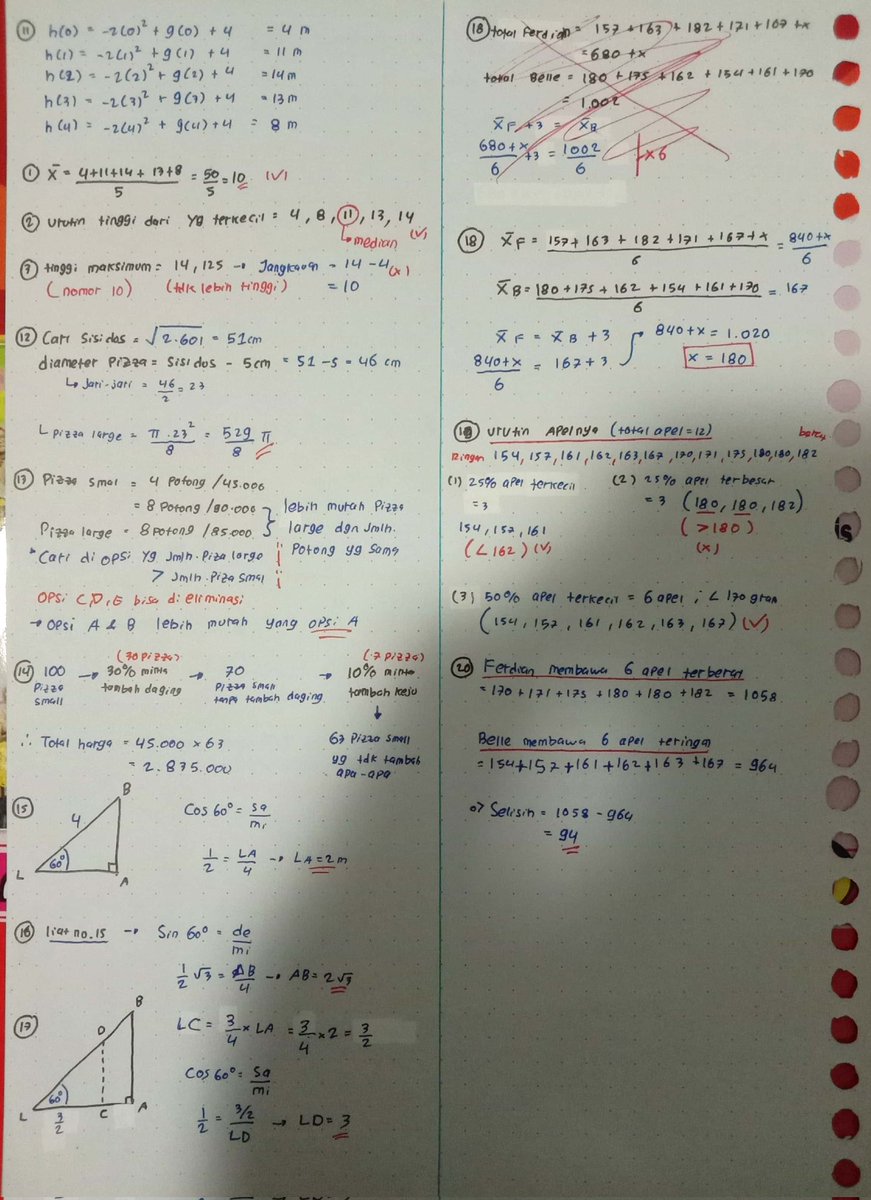 11 h(0) = -2(0)² + 9(0) + 4 = 4 m
h(1) = -2(1)² + 9(1) + 4 = 11 m
h(2) = -2(2)² + 9(2) + 4 = 14 m
h(3) = -2(3)² + 9(3) + 4 = 13 m
h(4) = -2(4)² + 9(4) + 4 = 8 m
1 X̄ = 4+11+14+13+8 / 5 = 50/5 = 10 (√)
2 urutin tinggi dari yg terkecil = 4, 8, 11, 13, 14 (√)
↳ median
3 tinggi maksimum = 14,125 → Jangkauan = 14 - 4 (x)
(nomor 10) (tdk lebih tinggi) = 10
12 Cari sisi dus = √2.601 = 51 cm
diameter Pizza = Sisi dus - 5cm = 51 - 5 = 46 cm
↳ Jari-jari = 46/2 = 23
L pizza large = π . 23² / 8 = 529/8 π
13 Pizza smal = 4 Potong /45.000
= 8 Potong /90.000
Pizza large = 8 Potong /85.000
lebih murah Pizza
large dgn Jmlh.
Potong yg sama
* Cari di opsi yg Jmlh. Piza large
> Jmlh. Piza smal
OPSi C, D, E bisa di eliminasi
→ OPSi A & B lebih murah yang OPSi A
14 100 Pizza small → (30 Pizza) 30% minta tambah daging → 70 Pizza small tanpa tambah daging → (7 pizza) 10% minta tambah keju
↓
63 Pizza small
yg tdk tambah
apa-apa
∴ Total harga = 45.000 x 63
= 2.835.000
15 B 4 60° L A
Cos 60° = sa/mi
1/2 = LA/4 → LA = 2 m
16 liat no.15 → Sin 60° = de/mi
1/2 √3 = AB/4 → AB = 2√3
17 B D 60° L 3/2 C A
LC = 3/4 x LA = 3/4 x 2 = 3/2
Cos 60° = sa/mi
1/2 = 3/2 / LD → LD = 3
18 total Ferdian = 157 + 163 + 182 + 171 + 167 + x
= 680 + x
total Belle = 180 + 175 + 162 + 154 + 161 + 170
= 1.002
X̄F + 3 = X̄B
680+x / 6 + 3 = 1002 / 6 | x6
18 X̄F = 157 + 163 + 182 + 171 + 167 + x / 6 = 840+x / 6
X̄B = 180 + 175 + 162 + 154 + 161 + 170 / 6 = 167
X̄F = X̄B + 3
840+x / 6 = 167 + 3
840 + x = 1.020
x = 180
19 urutin Apelnya (total apel = 12)
ringan 154, 157, 161, 162, 163, 167, 170, 171, 175, 180, 180, 182 berat
(1) 25% apel terkecil
= 3
154, 157, 161
(< 162) (√)
(2) 25% apel terbesar
= 3 (180, 180, 182)
(>180)
(x)
(3) 50% apel terkecil = 6 apel ; < 170 gram
(154, 157, 161, 162, 163, 167) (√)
20 Ferdian membawa 6 apel terberat
= 170 + 171 + 175 + 180 + 180 + 182 = 1058
Belle membawa 6 apel teringan
= 154 + 157 + 161 + 162 + 163 + 167 = 964
Selisih = 1058 - 964
= 94
is